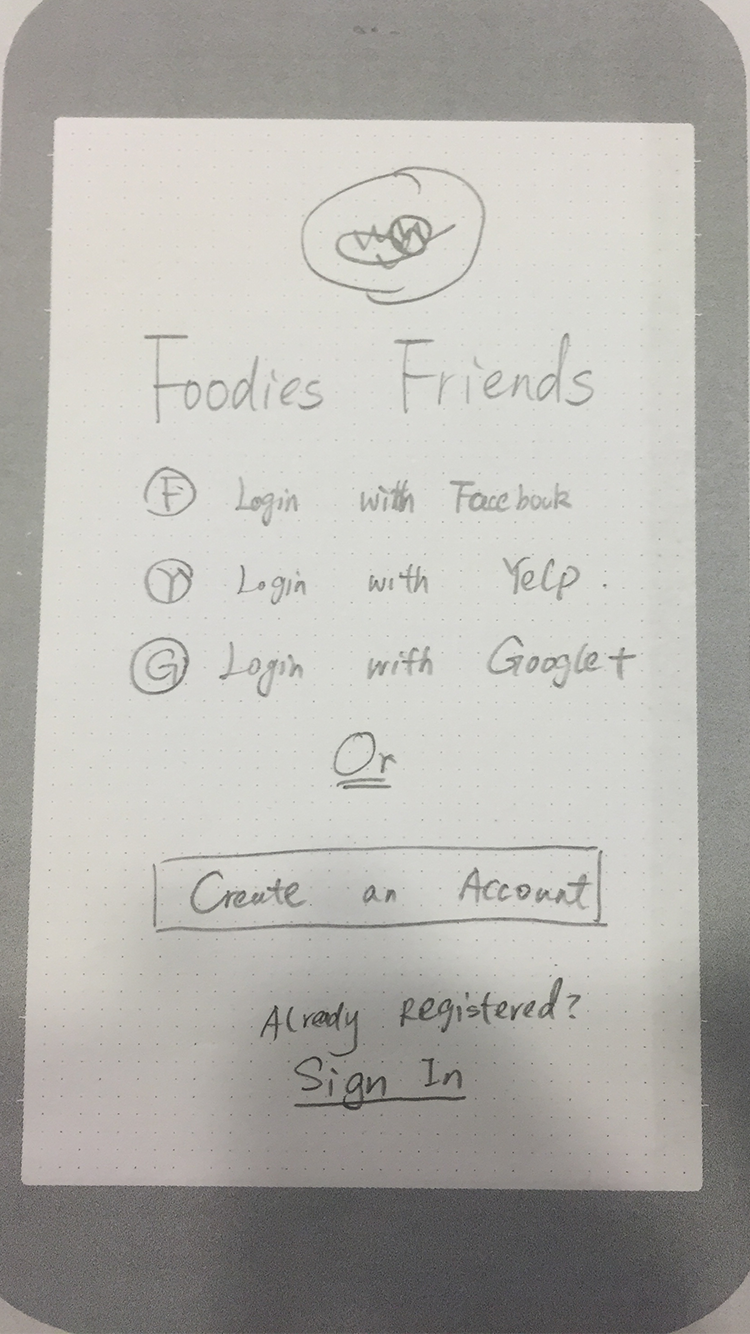 Foodies Friends
F Login with Facebook
Y Login with Yelp.
G Login with Google+
Or
Create an Account
Already Registered?
Sign In